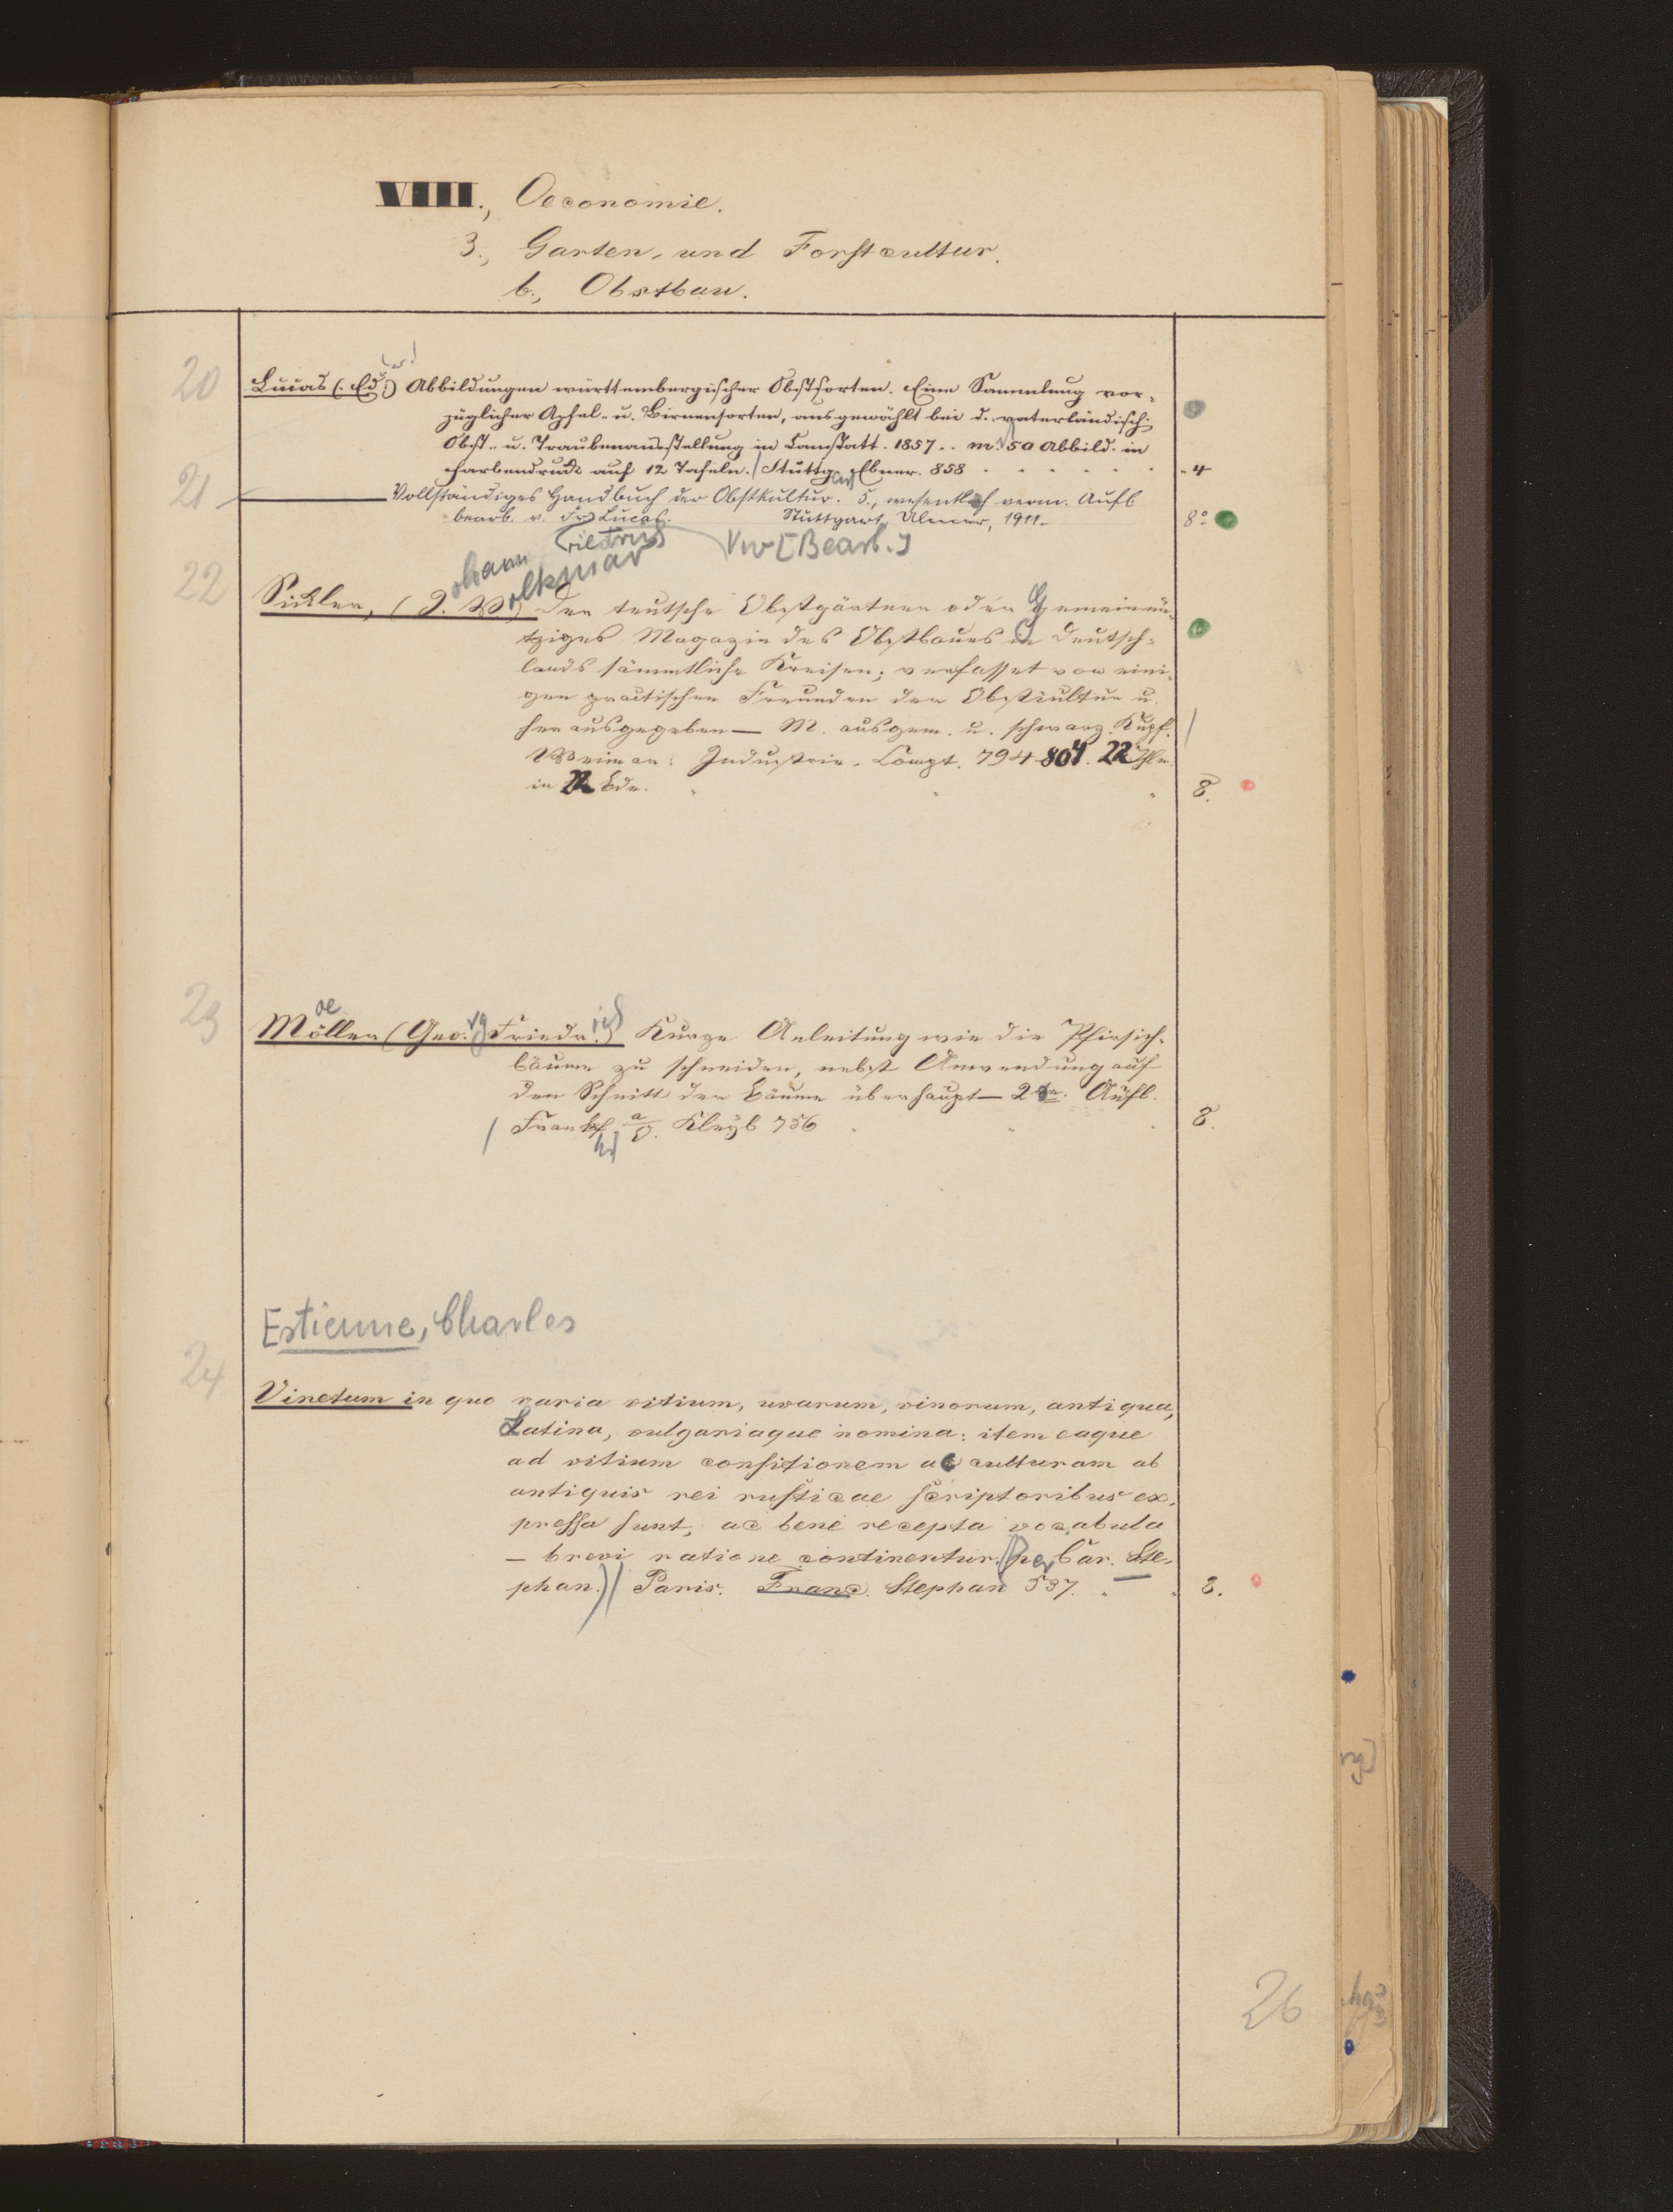 VIII., Oeconomie.
3., Garten, und Forstcultur.
b., Obstbau.
uard
20 Lucas (: Ed :) Abbildungen württembergischer Obstsorten. Eine Sammlung vor-
züglicher Apfel- u. Birnensorten, ausgewählt bei d. vaterländisch.
Obst- u. Traubenausstellung in Canstatt. 1857.. m. 50 Abbild. in
Farbendruck auf 12 Tafeln. / Stuttgart Ebner. 858 4
21 — Vollständiges Handbuch der Obstkultur. 5., wesentlich verm. Aufl.
bearb. v. Fr. Lucas. Stuttgart, Ulmer, 1911. 8°
riedrich Vw [Bearb.]
ohann olkmar
22 Sickler, (J. V.) Der teutsche Obstgärtner oder Gemeinnü-
tziges Magazin des Obstbaues in Deutsch-
lands sämmtliche Kreisen; verfasset von eini-
gen practischen Freunden der Obstcultur u.
herausgegeben — M. ausgem. u. schwarz. Kupf. /
Weimar: Industrie-Compt. 794-804. 22 Thle.
in 22 Bde. 8.
oe
23 Möller (Georg Friedrich) Kurze Anleitung wie die Pfirsich-
bäume zu schneiden, nebst Anwendung auf
den Schnitt der Bäume überhaupt — 2te. Aufl.
/ Frankf. a/O. Kleyb 756 8.
Estienne, Charles
24 Vinetum in quo varia vitium, uvarum, vinorum, antiqua,
Latina, vulgariaque nomina: item eaque
ad vitium consitionem ac culturam ab
antiquis rei rusticae scriptoribus ex-
pressa sunt, ac bene recepta vocabula
— brevi ratione continentur. (per Car. Ste-
phan.) / Paris. Franc. Stephan 537. 8.
26